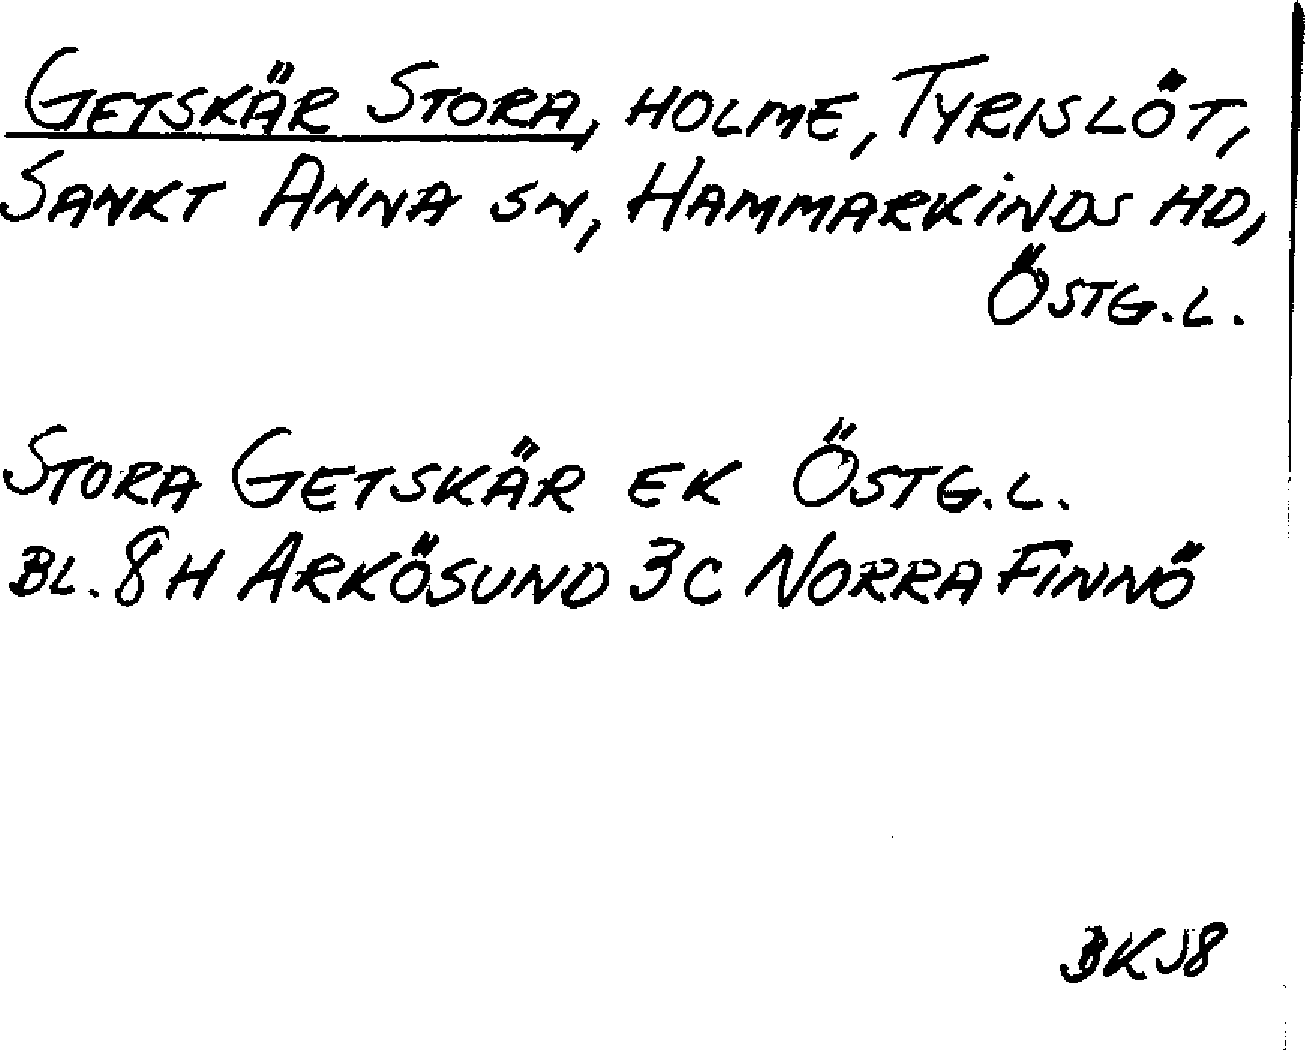 GETSKÄR STORA, HOLME, TYRISLÖT,
SANKT ANNA SN, HAMMARKINDS HD,
ÖSTG.L.
STORA GETSKÄR EK ÖSTG.L.
BL. 8H ARKÖSUND 3C NORRA FINNÖ
BKJ8